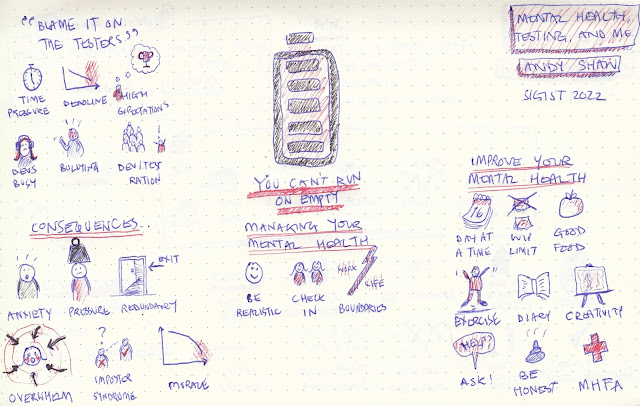 "BLAME IT ON
THE TESTERS"
TIME
PRESSURE
DEADLINE
HIGH
EXPECTATIONS
DEVS
BUSY
BULLYING
DEV:TEST
RATION
CONSEQUENCES..
ANXIETY
PRESSURE
REDUNDANCY
EXIT
OVERWHELM
?
IMPOSTOR
SYNDROME
MORALE
YOU CAN'T RUN
ON EMPTY
MANAGING YOUR
MENTAL HEALTH
BE
REALISTIC
CHECK
IN
WORK
LIFE
BOUNDARIES
MENTAL HEALTH,
TESTING, AND ME
ANDY SHAW
SIGIST 2022
IMPROVE YOUR
MENTAL HEALTH
16
DAY AT
A TIME
WIP
LIMIT
GOOD
FOOD
EXERCISE
DIARY
CREATIVITY
HELP?
ASK!
BE
HONEST
MHFA